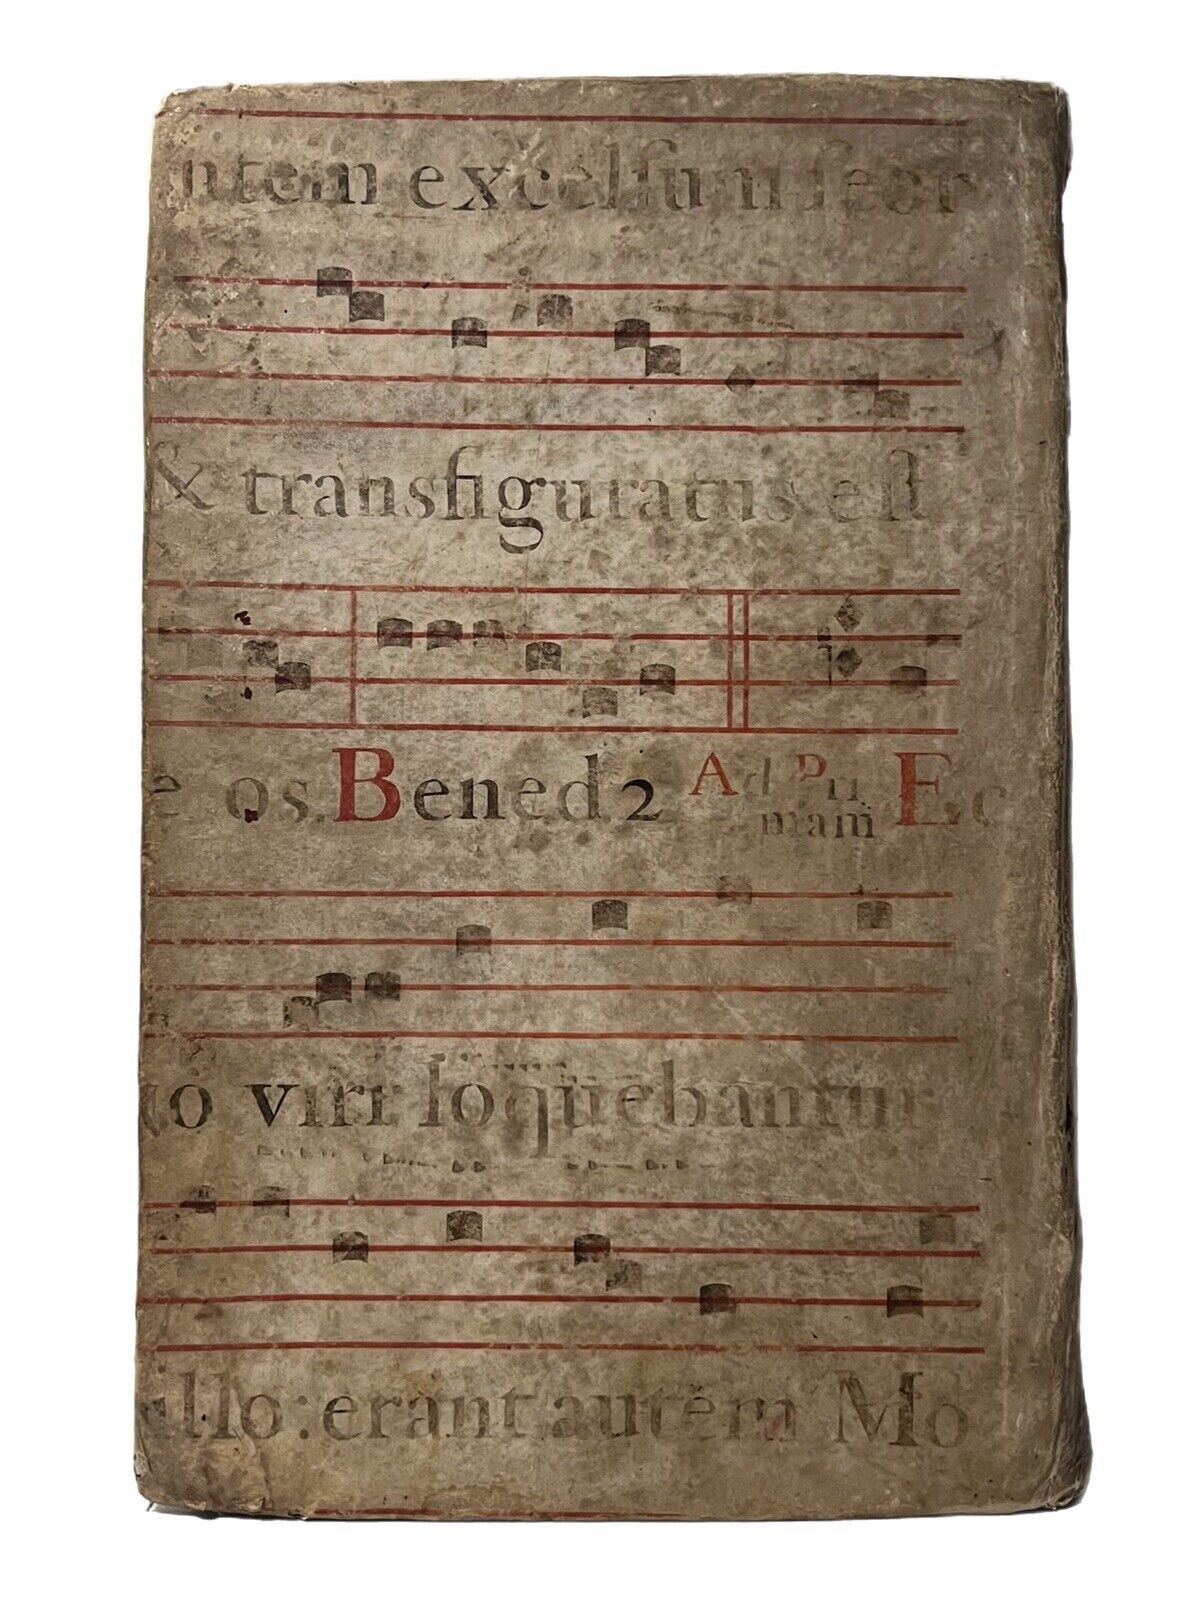 ntem excelſum ſeor
& transfiguratus eſt
e os. Bened 2 Ad Pri mam Ec
viri loquebantur
illo: erant autem Mo